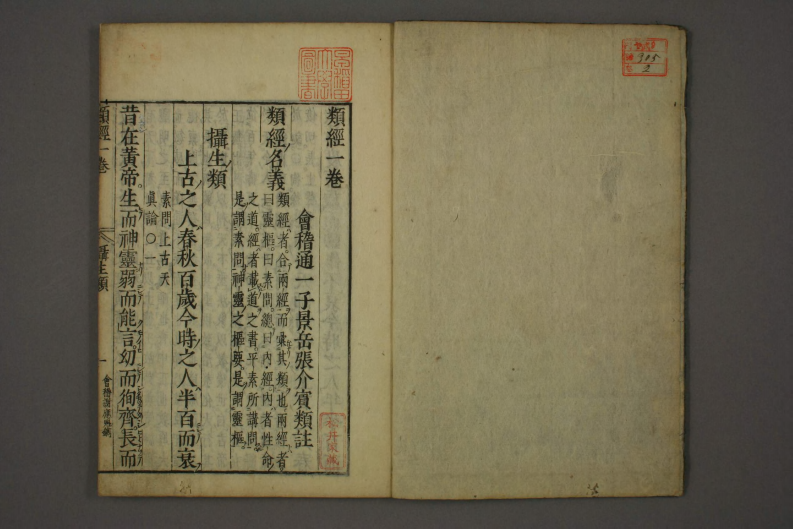 類經一卷
會稽通一子景岳張介賓類註
類經名義
類經者合兩經而彙其類也兩經者
曰靈樞曰素問總曰內經內者性命
之道經者載道之書平素所講問
是謂素問神靈之樞要是謂靈樞
攝生類
上古之人春秋百歲今時之人半百而衰
素問上古天
真論○一
昔在黃帝生而神靈弱而能言幼而徇齊長而
類經一卷
攝生類
一
905
2